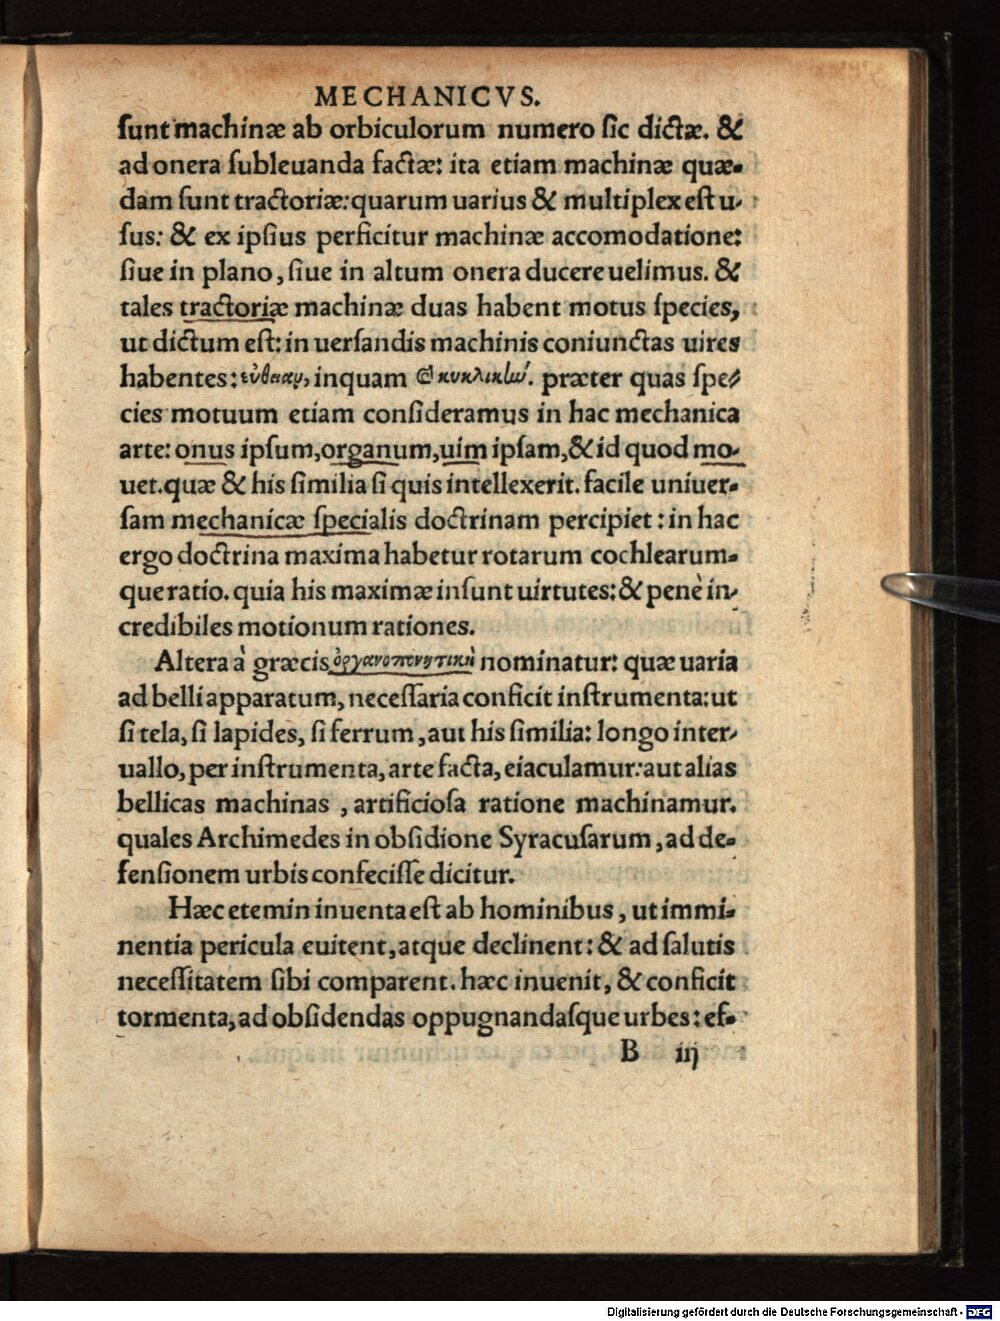 MECHANICVS.
ſunt machinæ ab orbiculorum numero ſic dictæ. &
ad onera ſubleuanda factæ: ita etiam machinæ quæ-
dam ſunt tractoriæ: quarum uarius & multiplex eſt u-
ſus: & ex ipſius perficitur machinæ accomodatione:
ſiue in plano, ſiue in altum onera ducere uelimus. &
tales tractoriæ machinæ duas habent motus ſpecies,
ut dictum eſt: in uerſandis machinis coniunctas uires
habentes: inquam præter quas ſpe-
cies motuum etiam conſideramus in hac mechanica
arte: onus ipſum, organum, uim ipſam, & id quod mo-
uet. quæ & his ſimilia ſi quis intellexerit. facile uniuer-
ſam mechanicæ ſpecialis doctrinam percipiet: in hac
ergo doctrina maxima habetur rotarum cochlearum-
que ratio. quia his maximæ inſunt uirtutes: & penè in-
credibiles motionum rationes.
Altera à græcis nominatur: quæ uaria
ad belli apparatum, neceſſaria conficit inſtrumenta: ut
ſi tela, ſi lapides, ſi ferrum, aut his ſimilia: longo inter-
uallo, per inſtrumenta, arte facta, eiaculamur: aut alias
bellicas machinas, artificioſa ratione machinamur.
quales Archimedes in obſidione Syracuſarum, ad de-
fenſionem urbis confeciſſe dicitur.
Hæc etemin inuenta eſt ab hominibus, ut immi-
nentia pericula euitent, atque declinent: & ad ſalutis
neceſſitatem ſibi comparent. hæc inuenit, & conficit
tormenta, ad obſidendas oppugnandaſque urbes: ef-
B iij
Digitalisierung gefördert durch die Deutsche Forschungsgemeinschaft - DFG